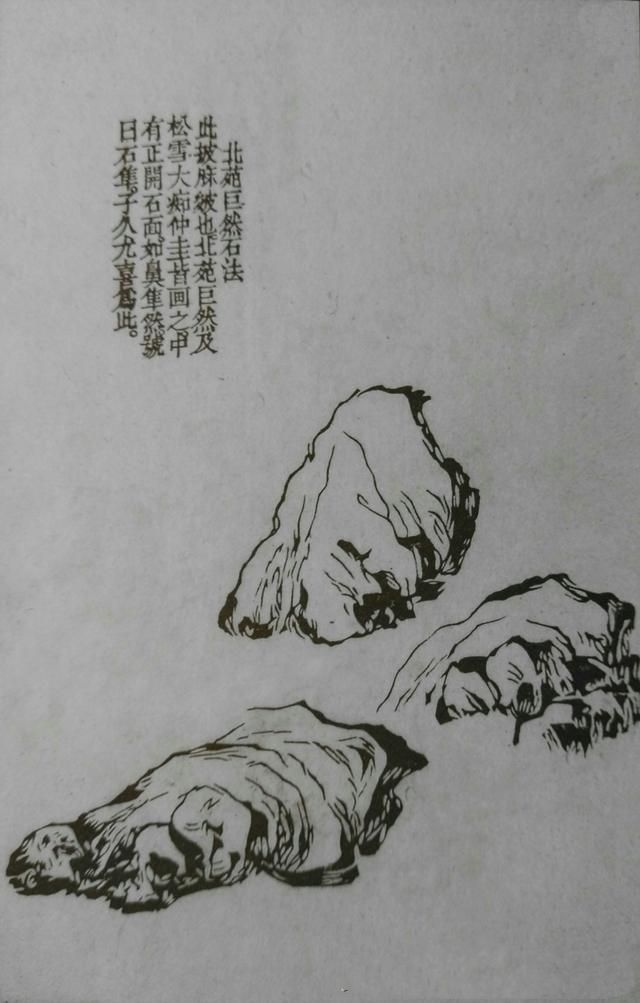 北苑巨然石法
此披麻皴也。北苑巨然及
松雪大痴仲圭皆画之。中
有正開石面。如鼻隼然。號
曰石隼。子久尤喜爲此。